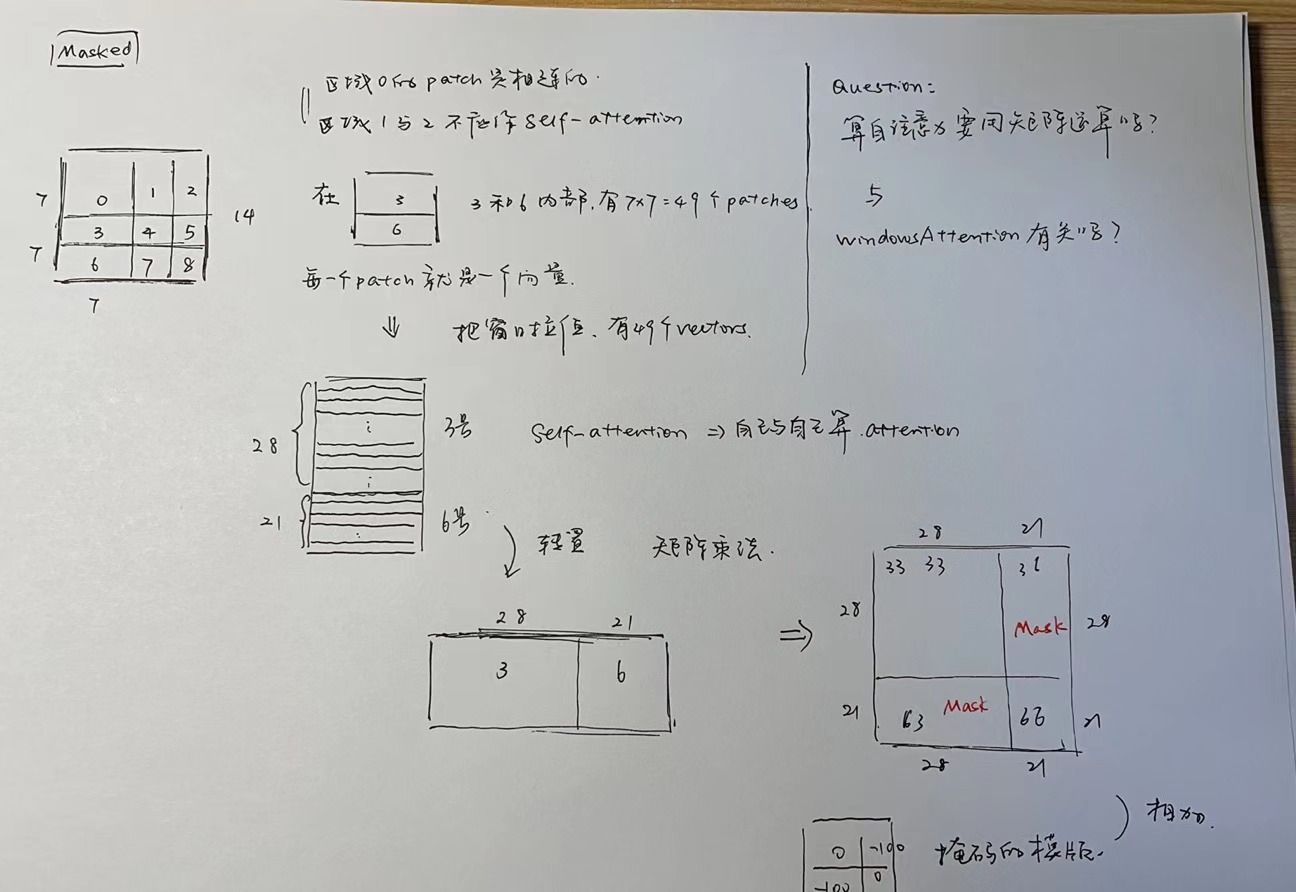 Masked
区域0的patch是相连的.
区域1与2不应作self-attention
7 0 1 2 14
7 3 4 5
6 7 8
7
在 3 6 3和6内部,有7×7=49个patches.
每一个patch就是一个向量.
⇓ 把窗口拉直,有49个vectors.
Question:
算自注意力要用矩阵运算吗?
与
windowsAttention有关吗?
28 3号
21 6号
self-attention ⇒ 自己与自己算attention
转置 矩阵乘法.
28 21
3 6
⇒
28 21
28 33 33 36 Mask 28
21 63 Mask 66 21
28 21
0 -100
-100 0
掩码的模版. 相加.